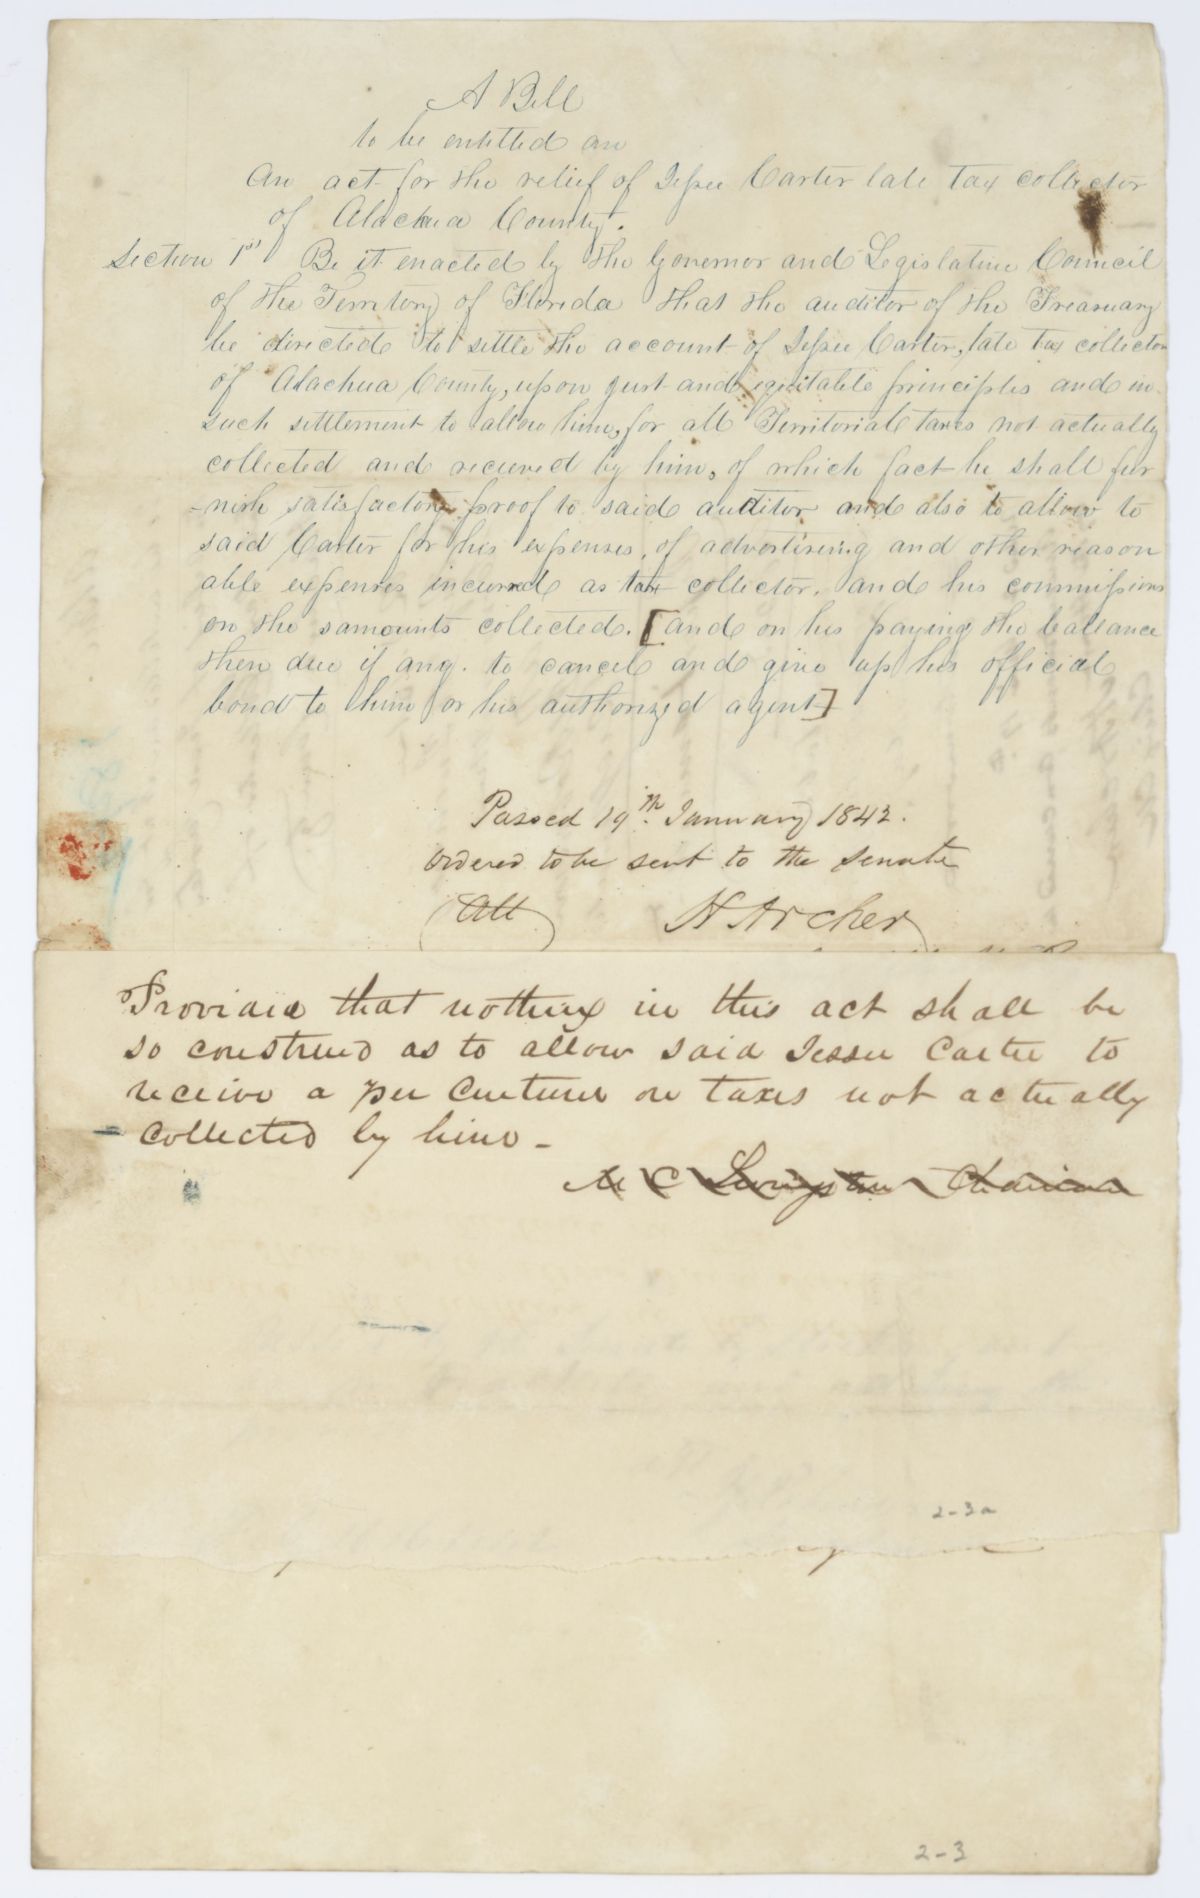 A Bill
to be entitled an
An act for the relief of Jessee Carter late tax collector
of Alachua County.
Section 1st Be it enacted by the Governor and Legislative Council
of the Territory of Florida that the auditor of the Treasuary
be directed to settle the account of Jessee Carter, late tax collector
of Alachua County, upon just and equitable principles and in
such settlement to allow him, for all Territorial taxes not actually
collected and recieved by him, of which fact he shall fur
-nish satisfactory proof to said auditor and also to allow to
said Carter for his expenses, of advertising and other reason
able expenses incurred as tax collector, and his commissions
on the samounts collected. [and on his paying the ballance
then due if any. to cancel and give up his official
bond to him or his authorized agent]
Passed 19th. January 1842.
Ordered to be sent to the Senate
(Att) H Archer
Provided that nothing in this act shall be
so construed as to allow said Jessee Carter to
receive a per Centum on taxes not actually
collected by him -
M C Livingston Chairman
2-3a
2-3